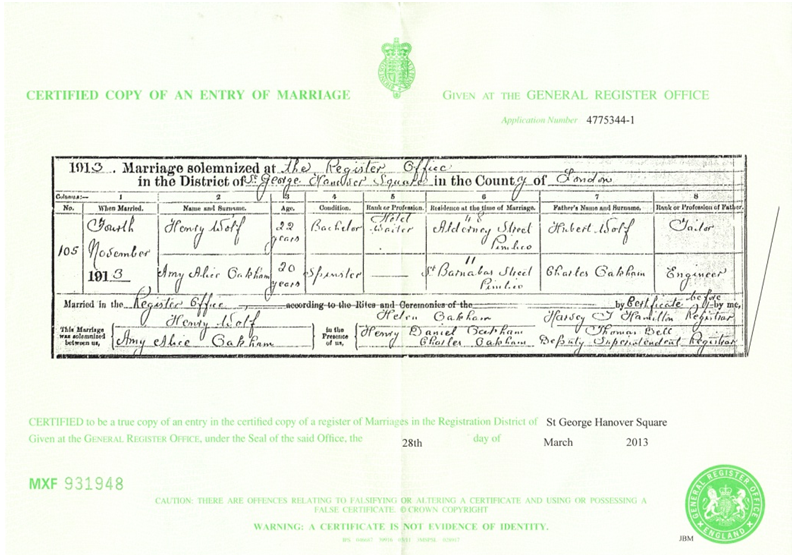 CERTIFIED COPY OF AN ENTRY OF MARRIAGE
GIVEN AT THE GENERAL REGISTER OFFICE
Application Number 4775344-1
1913. Marriage solemnized at the Register Office
in the District of St. George Hanover Square in the County of London
Columns:— 1 2 3 4 5 6 7 8
No. When Married. Name and Surname. Age. Condition. Rank or Profession. Residence at the time of Marriage. Father's Name and Surname. Rank or Profession of Father.
105 Fourth November 1913
Henry Wolf 22 years Bachelor Hotel Waiter 48 Alderney Street Pimlico Hubert Wolf Tailor
Amy Alice Oakham 20 years Spinster — 11 St Barnabas Street Pimlico Charles Oakham Engineer
Married in the Register Office according to the Rites and Ceremonies of the by Certificate before by me,
This Marriage was solemnized between us,
Henry Wolf
Amy Alice Oakham
in the Presence of us,
Helen Oakham
Henry Daniel Oakham
Charles Oakham
Harvey T Hamilton Registrar
Thomas Bell
Deputy Superintendent Registrar
CERTIFIED to be a true copy of an entry in the certified copy of a register of Marriages in the Registration District of St George Hanover Square
Given at the GENERAL REGISTER OFFICE, under the Seal of the said Office, the 28th day of March 2013
MXF 931948
CAUTION: THERE ARE OFFENCES RELATING TO FALSIFYING OR ALTERING A CERTIFICATE AND USING OR POSSESSING A
FALSE CERTIFICATE. © CROWN COPYRIGHT
WARNING: A CERTIFICATE IS NOT EVIDENCE OF IDENTITY.
GENERAL REGISTER OFFICE
ENGLAND
JBM